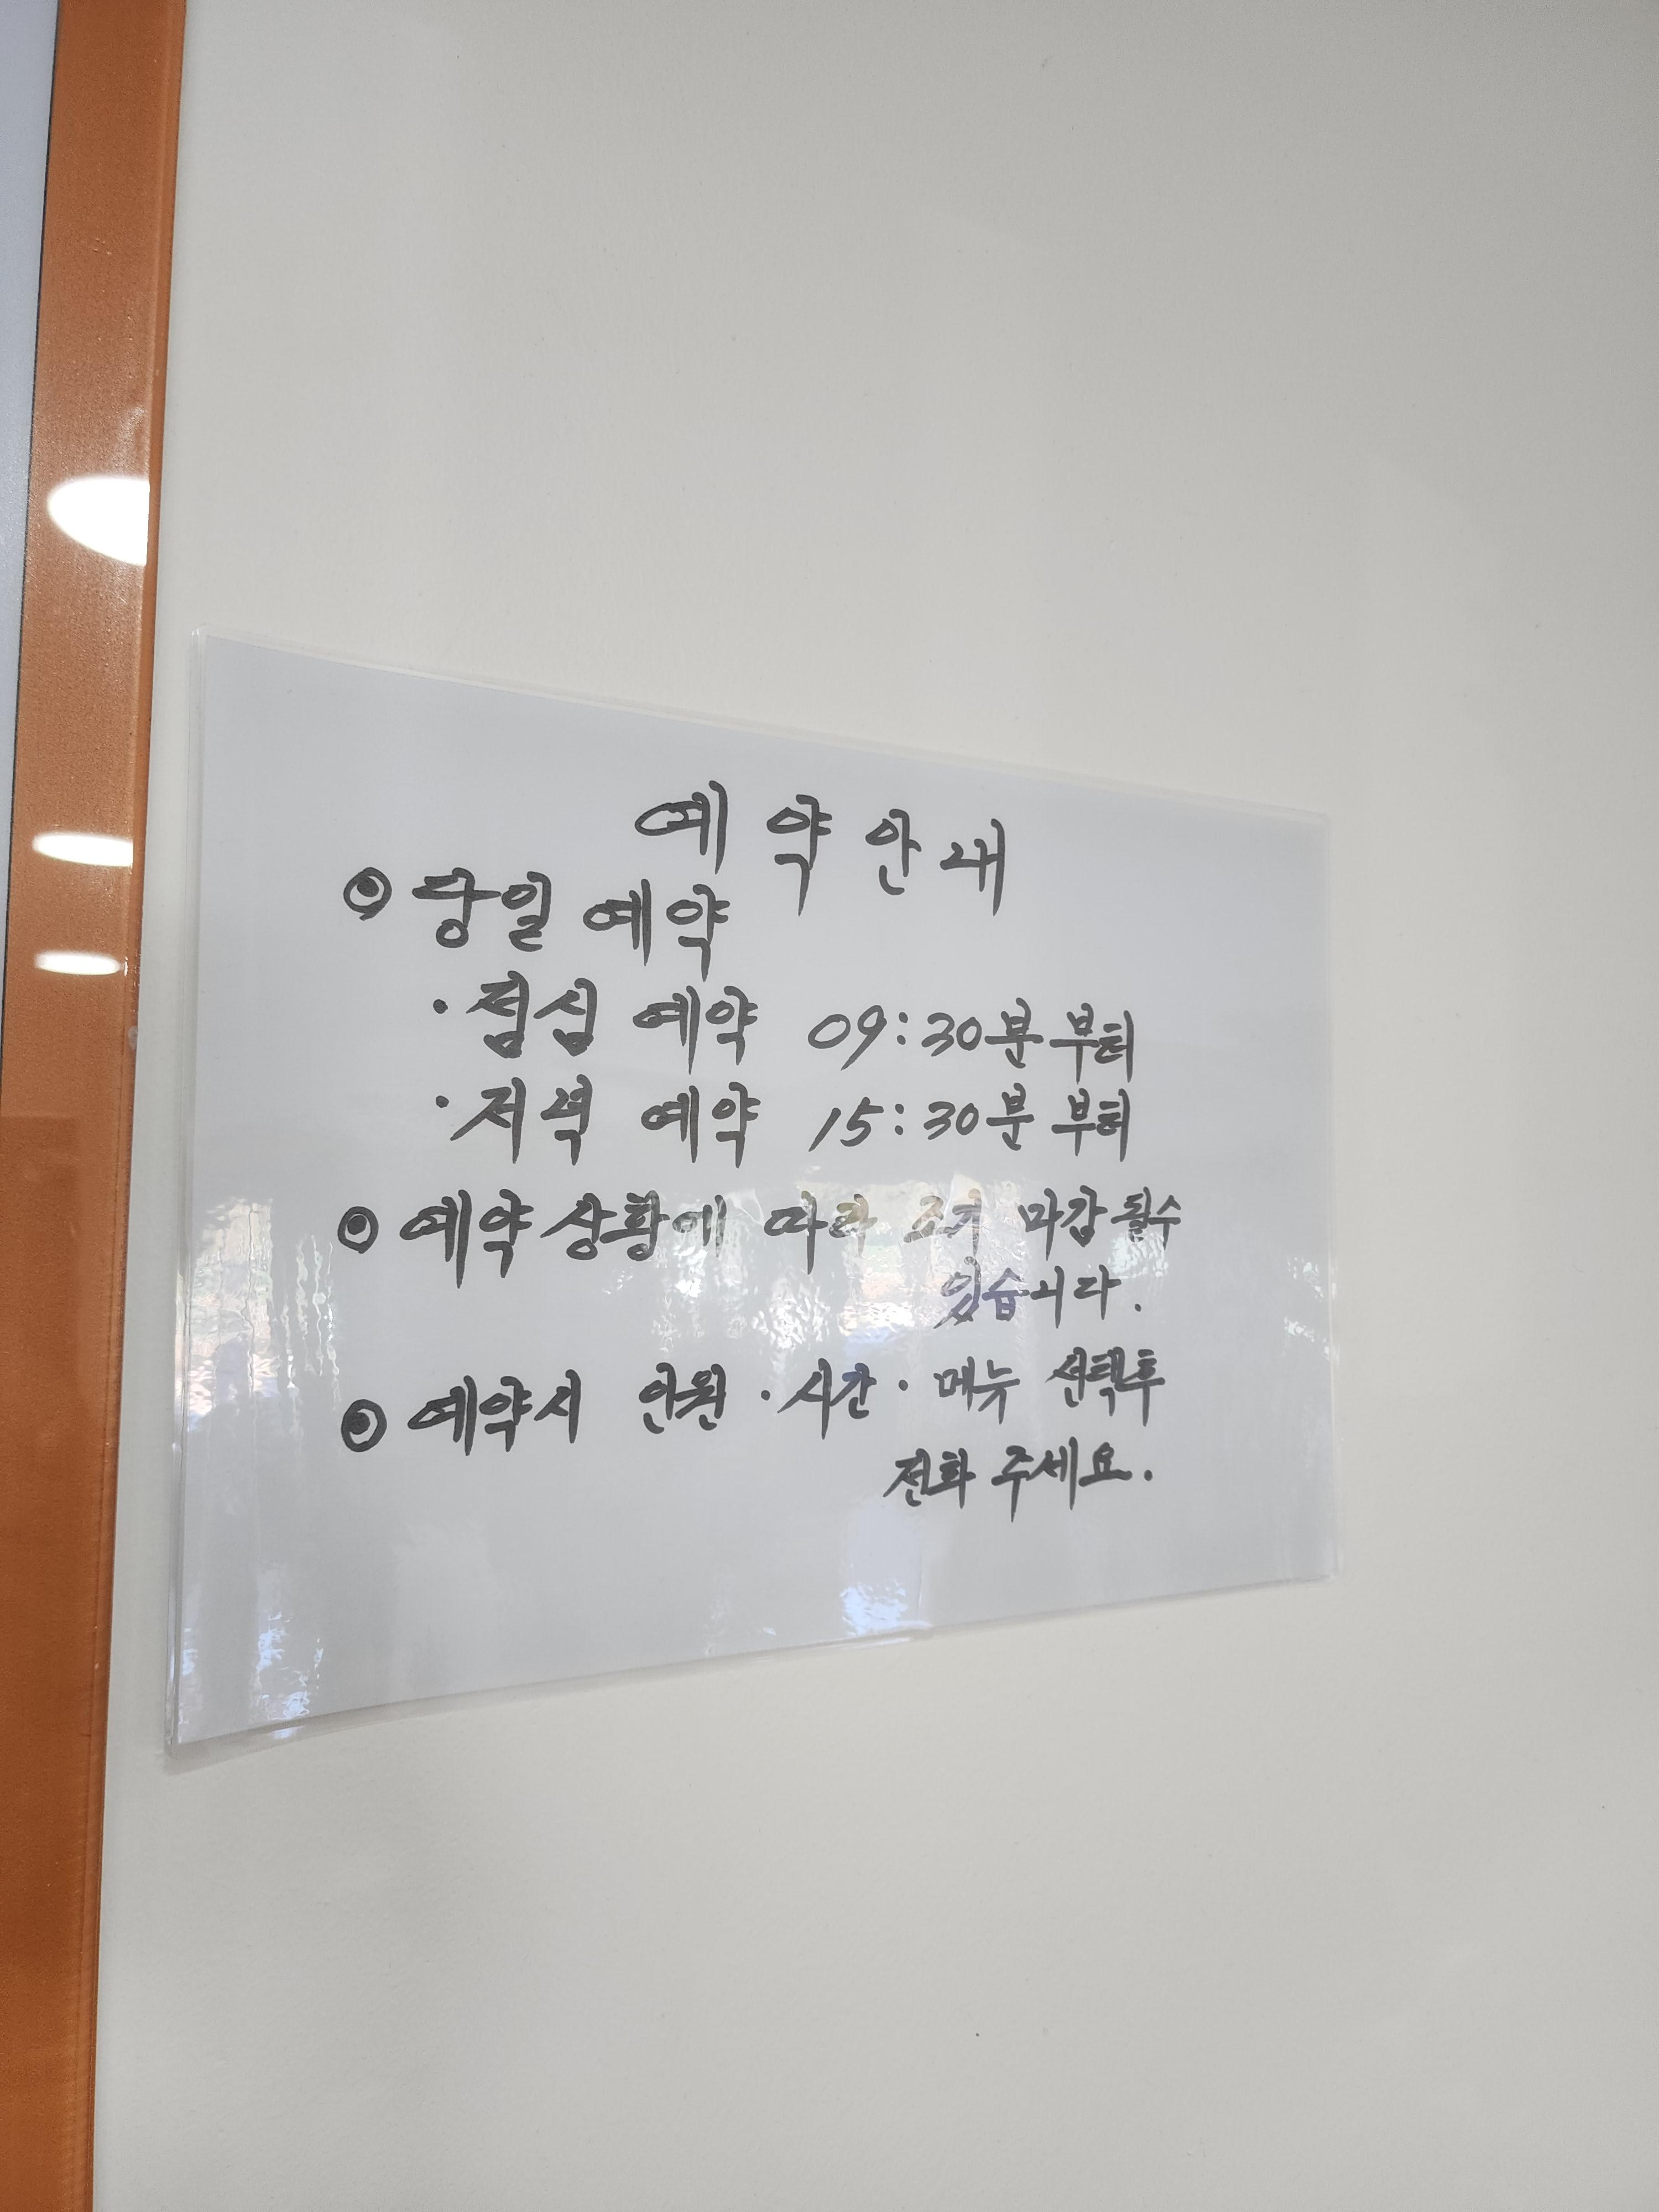 예약안내
◉ 당일 예약
· 점심 예약 09:30분 부터
· 저녁 예약 15:30분 부터
◉ 예약 상황에 따라 조기 마감 될수
있습니다.
◉ 예약시 인원 · 시간 · 메뉴 선택후
전화 주세요.